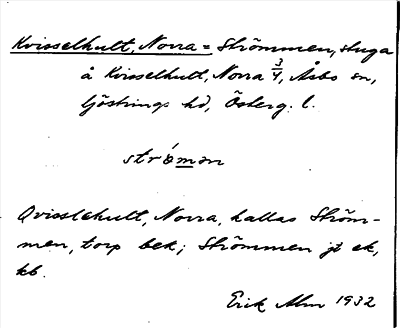 Kvisselhult, Norra = Strömmen, stuga
å Kvisselhult, Norra 3/4, Åsbo sn,
Göstrings hd, Österg. l.
strømən
Qvisslehult, Norra, kallas Ström-
men, torp bek; Strömmen jt ek,
kb.
Erik Alm 1932